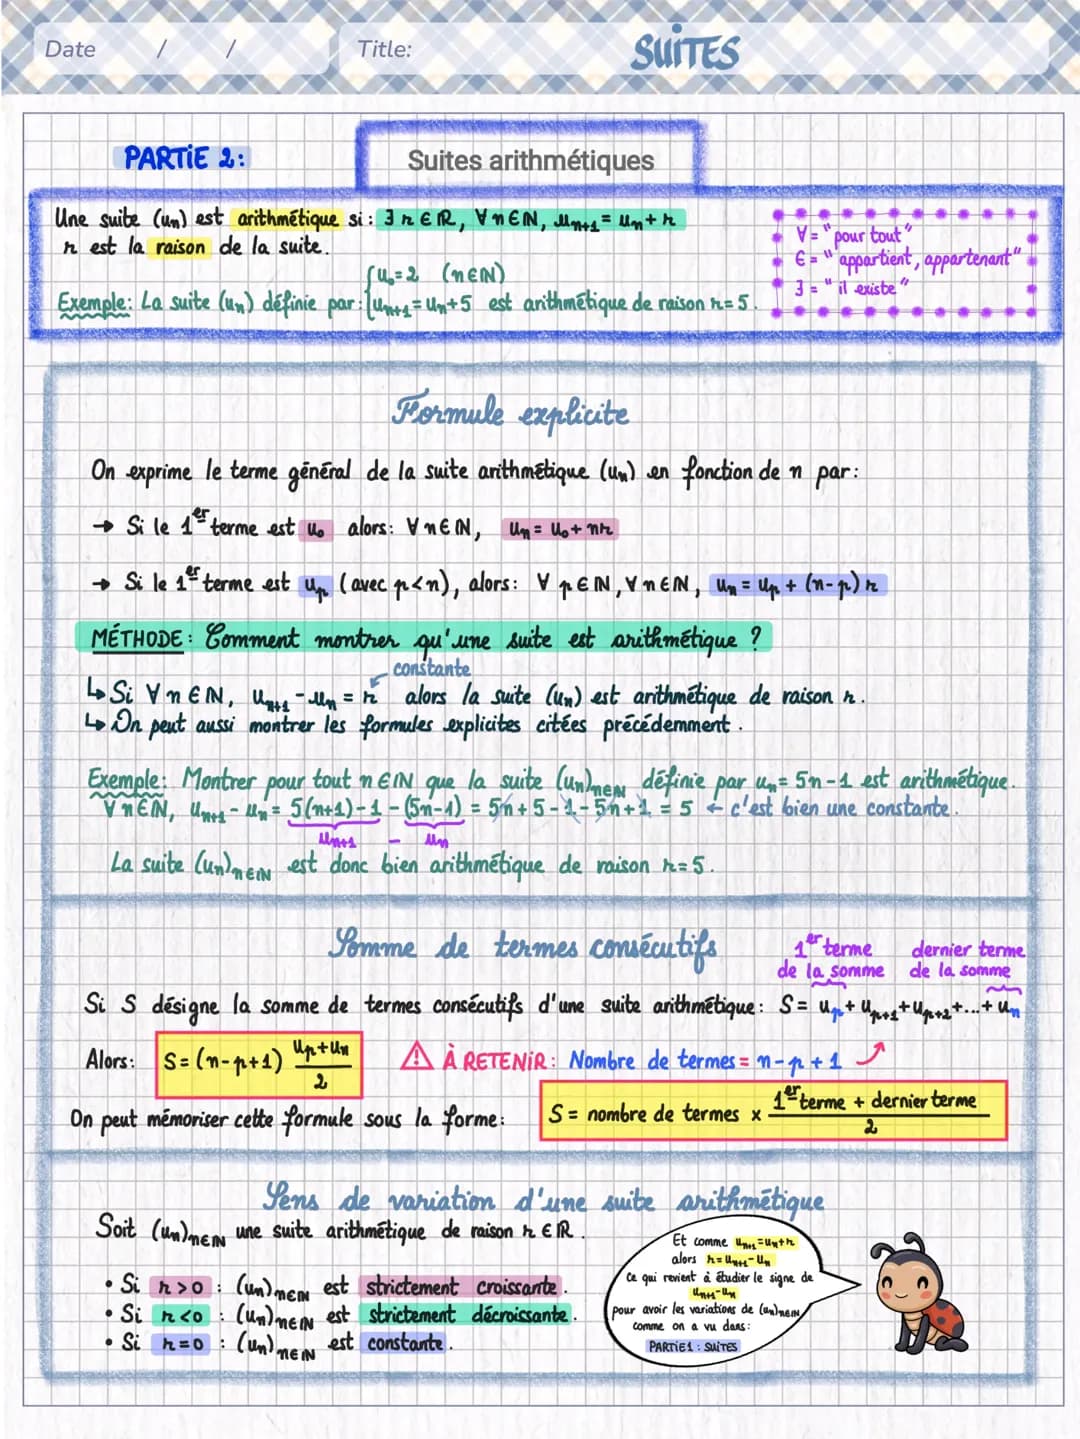 Date / / Title: SUITES
PARTIE 2:
Suites arithmétiques
Une suite (un) est arithmétique si : ∃ r ∈ ℝ, ∀ n ∈ ℕ, un+1 = un + r
r est la raison de la suite.
∀ = "pour tout"
∈ = "appartient, appartenant"
∃ = "il existe"
Exemple: La suite (un) définie par: { u0 = 2 (n∈ℕ)
un+1 = un + 5 est arithmétique de raison r = 5.
Formule explicite
On exprime le terme général de la suite arithmétique (un) en fonction de n par:
→ Si le 1er terme est u0 alors: ∀ n ∈ ℕ, un = u0 + nr
→ Si le 1er terme est up (avec p<n), alors: ∀ p ∈ ℕ, ∀ n ∈ ℕ, un = up + (n-p) r
MÉTHODE: Comment montrer qu'une suite est arithmétique ?
constante
↳ Si ∀ n ∈ ℕ, un+1 - un = r alors la suite (un) est arithmétique de raison r.
↳ On peut aussi montrer les formules explicites citées précédemment.
Exemple: Montrer pour tout n ∈ ℕ que la suite (un)n∈ℕ définie par un = 5n - 1 est arithmétique.
∀ n ∈ ℕ, un+1 - un = 5(n+1) - 1 - (5n-1) = 5n + 5 - 1 - 5n + 1 = 5 ← c'est bien une constante.
un+1 - un
La suite (un)n∈ℕ est donc bien arithmétique de raison r = 5.
Somme de termes consécutifs
1er terme de la somme
dernier terme de la somme
Si S désigne la somme de termes consécutifs d'une suite arithmétique: S = up + up+1 + up+2 + ... + un
Alors: S = (n-p+1) (up + un)/2
⚠ À RETENIR: Nombre de termes = n - p + 1
On peut mémoriser cette formule sous la forme: S = nombre de termes x (1er terme + dernier terme)/2
Sens de variation d'une suite arithmétique
Soit (un)n∈ℕ une suite arithmétique de raison r ∈ ℝ.
• Si r > 0 : (un)n∈ℕ est strictement croissante.
• Si r < 0 : (un)n∈ℕ est strictement décroissante.
• Si r = 0 : (un)n∈ℕ est constante.
Et comme un+1 = un + r
alors r = un+1 - un
Ce qui revient à étudier le signe de
un+1 - un
pour avoir les variations de (un)n∈ℕ
comme on a vu dans:
PARTIE1 : SUITES